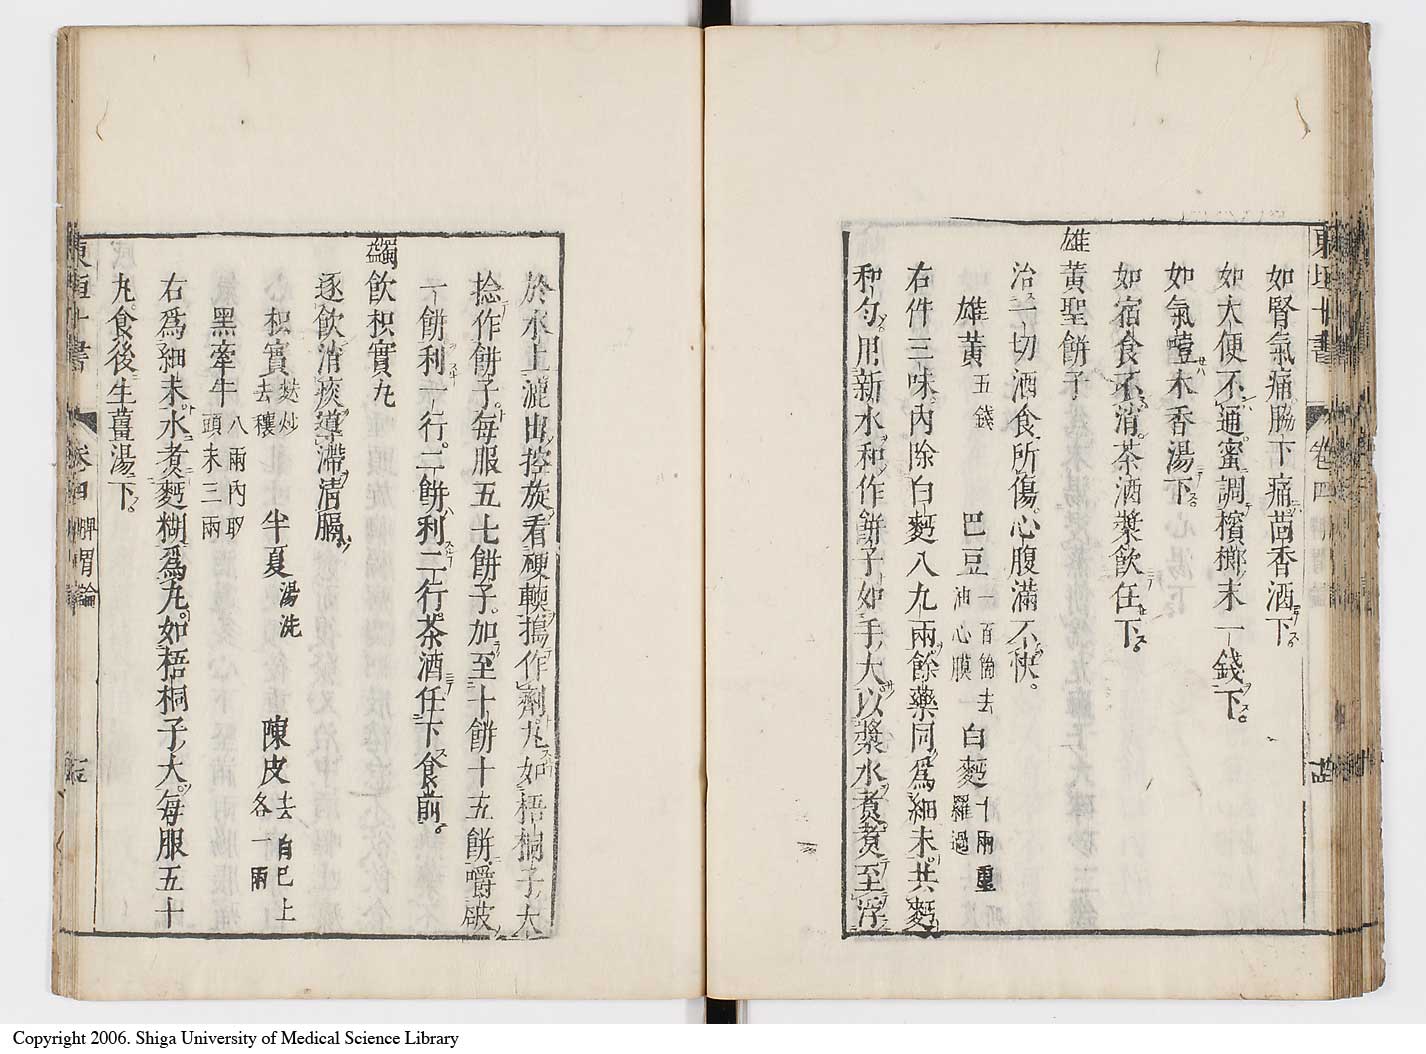 東垣十書 卷四
如腎氣痛脇下痛茴香酒下
如大便不通蜜調檳榔末一錢下
如氣噎木香湯下
如宿食不消茶酒漿飲任下
雄黃聖餅子
治一切酒食所傷心腹滿不快
雄黃五錢 巴豆一百箇去油心膜 白麪十兩重羅過
右件三味內除白麪八九兩餘藥同爲細末共麪
和勻用新水和作餅子如手大以漿水煮煮至浮
於水上漉出控旋看硬輭搗作劑丸如梧桐子大
捻作餅子每服五七餅子加至十餅十五餅嚼破
一餅利一行二餅利二行茶酒任下食前
蠲飲枳實丸
逐飲消痰導滯清膈
枳實麩炒去穰 半夏湯洗 陳皮去白已上各一兩
黑牽牛八兩內取頭末三兩
右爲細末水煮麪糊爲丸如梧桐子大每服五十
丸食後生薑湯下
東垣十書 卷四 脾胃論
Copyright 2006. Shiga University of Medical Science Library